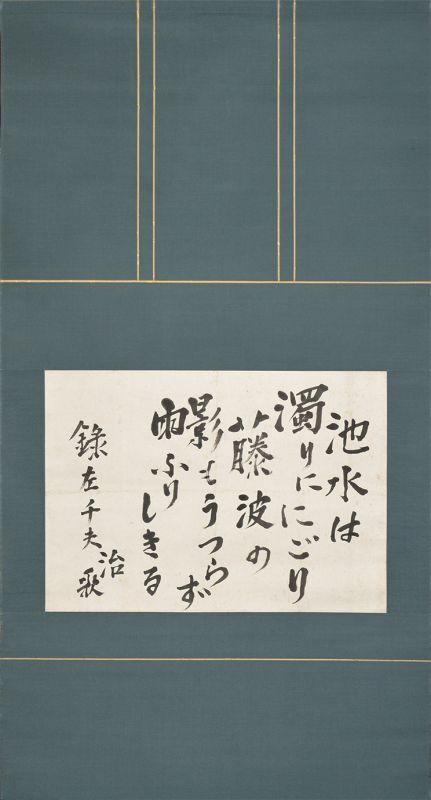 池水は
濁りににごり
藤波の
影もうつらず
雨ふり
しきる
録左千夫歌
治